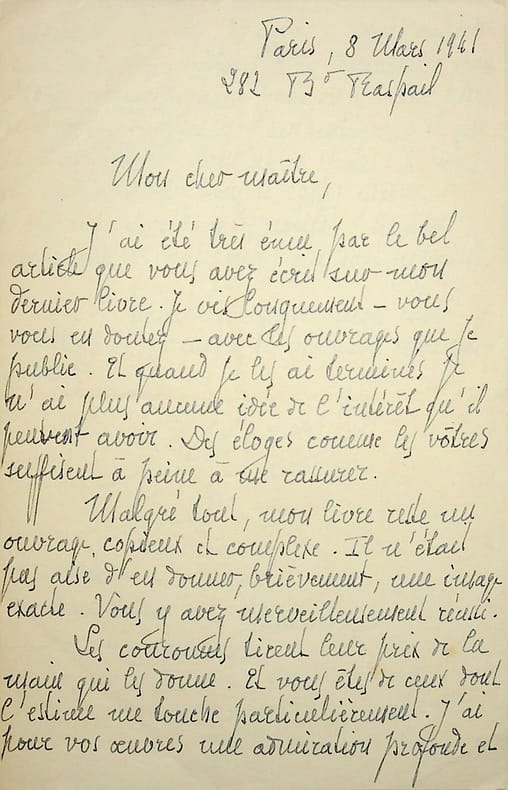 Paris, 8 Mars 1941
282 Bd Raspail
Mon cher maître,
J'ai été très ému par le bel
article que vous avez écrit sur mon
dernier livre. Je vis longuement – vous
vous en doutez – avec les ouvrages que je
publie. Et quand je les ai terminés je
n'ai plus aucune idée de l'intérêt qu'il
peuvent avoir. Des éloges comme les vôtres
suffisent à peine à me rassurer.
Malgré tout, mon livre reste un
ouvrage copieux et complexe. Il n'était
pas aisé d'en donner, brièvement, une image
exacte. Vous y avez merveilleusement réussi.
Les couronnes tirent leur prix de la
main qui les donne. Et vous êtes de ceux dont
l'estime me touche particulièrement. J'ai
pour vos œuvres une admiration profonde et